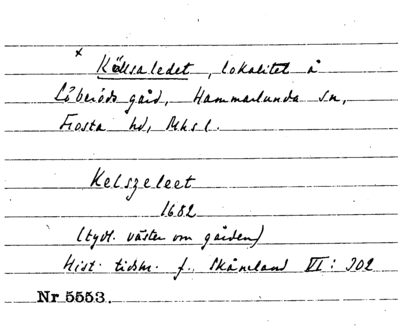 x
Källsaledet, lokalitet å
Löberöds gård, Hammarlunda sn,
Frosta hd, Mhsl.
Kelszeleet
1682
(tydl. väster om gården)
Hist. tidskr. f. Skåneland VI: 302
Nr 5553.